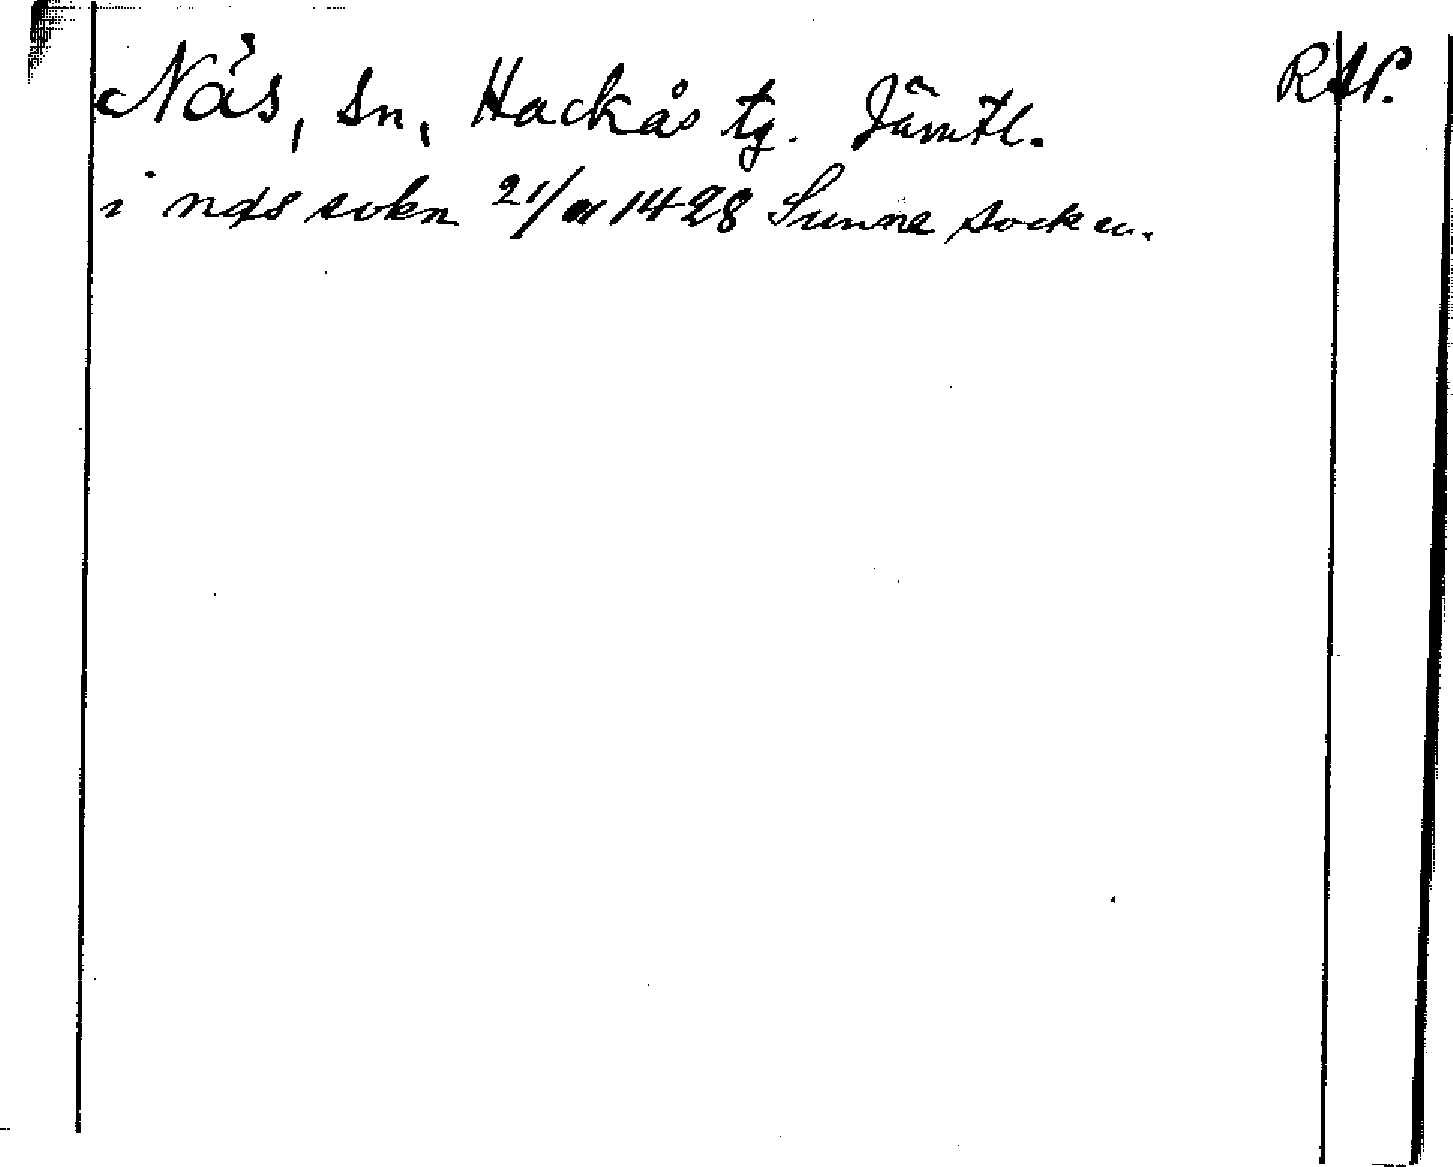 Näs, sn, Hackås tg. Jämtl. RAP.
i næs sokn 21/11 1428 Sunne socken.